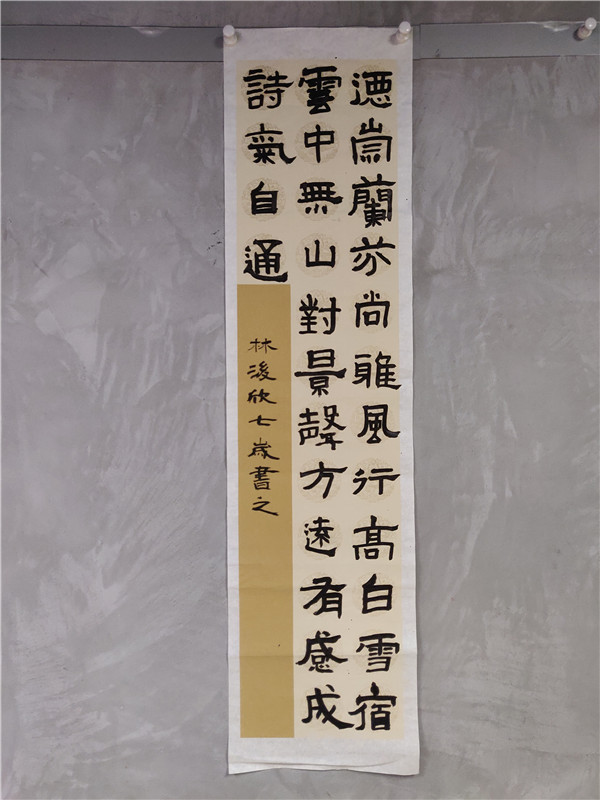 德崇蘭亦尚雅風行高白雪宿
雲中無山對景聲方遠有感成
詩氣自通
林浚欣七歲書之